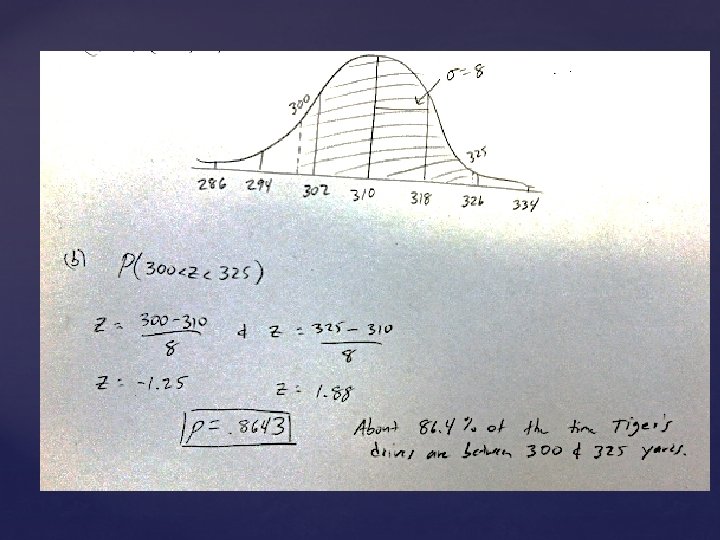 σ=8
300
325
286 294 302 310 318 326 334
(b) P(300<z<325)
z = 300-310 / 8 & z = 325-310 / 8
z = -1.25 z = 1.88
p = .8643
About 86.4% of the time Tiger's
drives are between 300 & 325 yards.